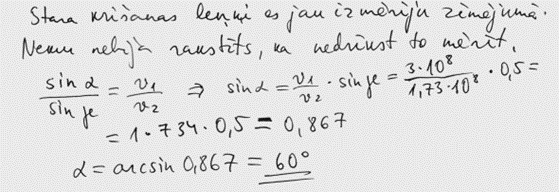 Stara krišanas leņķi es jau izmērīju zīmējumā.
Nemu nebija rakstīts, ka nedrīkst to mērīt.
sin α / sin γ = v₁ / v₂ ⇒ sin α = v₁ / v₂ · sin γ = 3·10⁸ / 1,73·10⁸ · 0,5 =
= 1·734·0,5 = 0,867
α = arcsin 0,867 = 60°